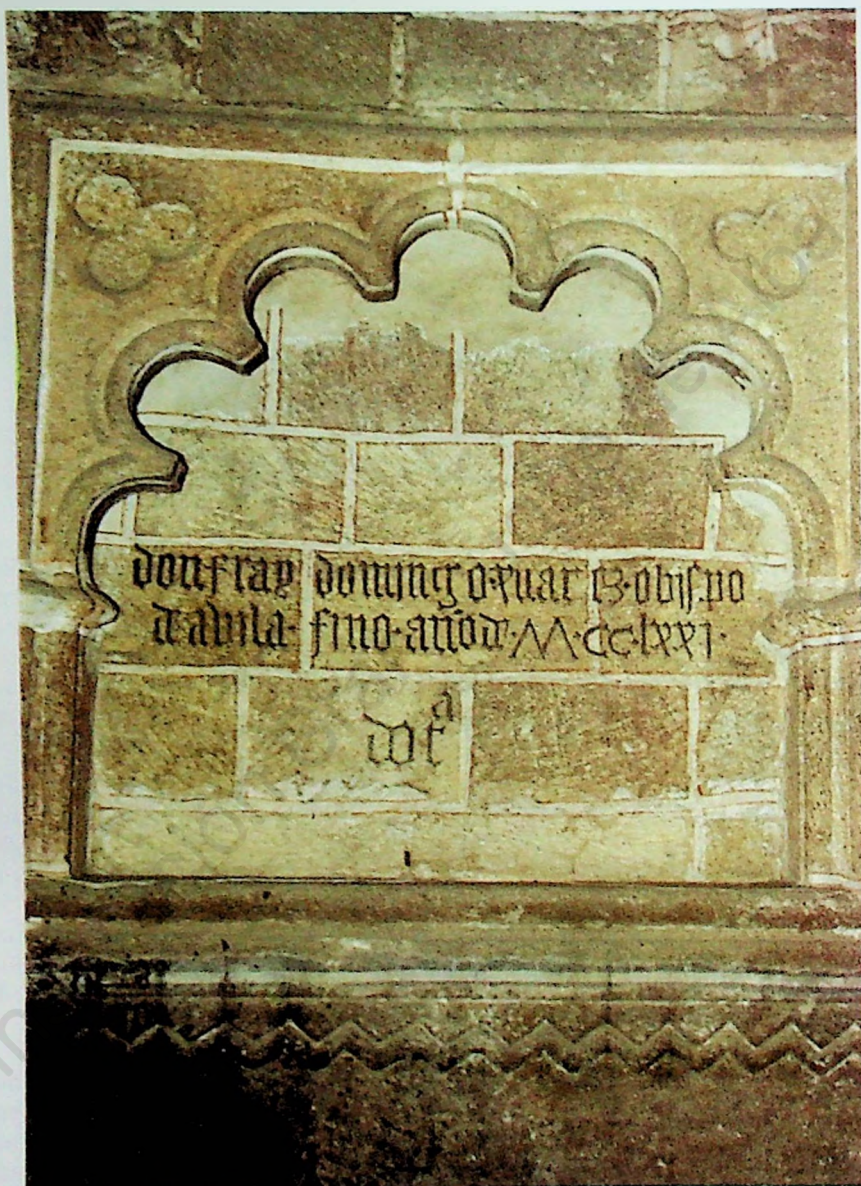 don fray domingo xuarez · obispo
de abila · fino · año de · M · CC · lxxi ·
dota